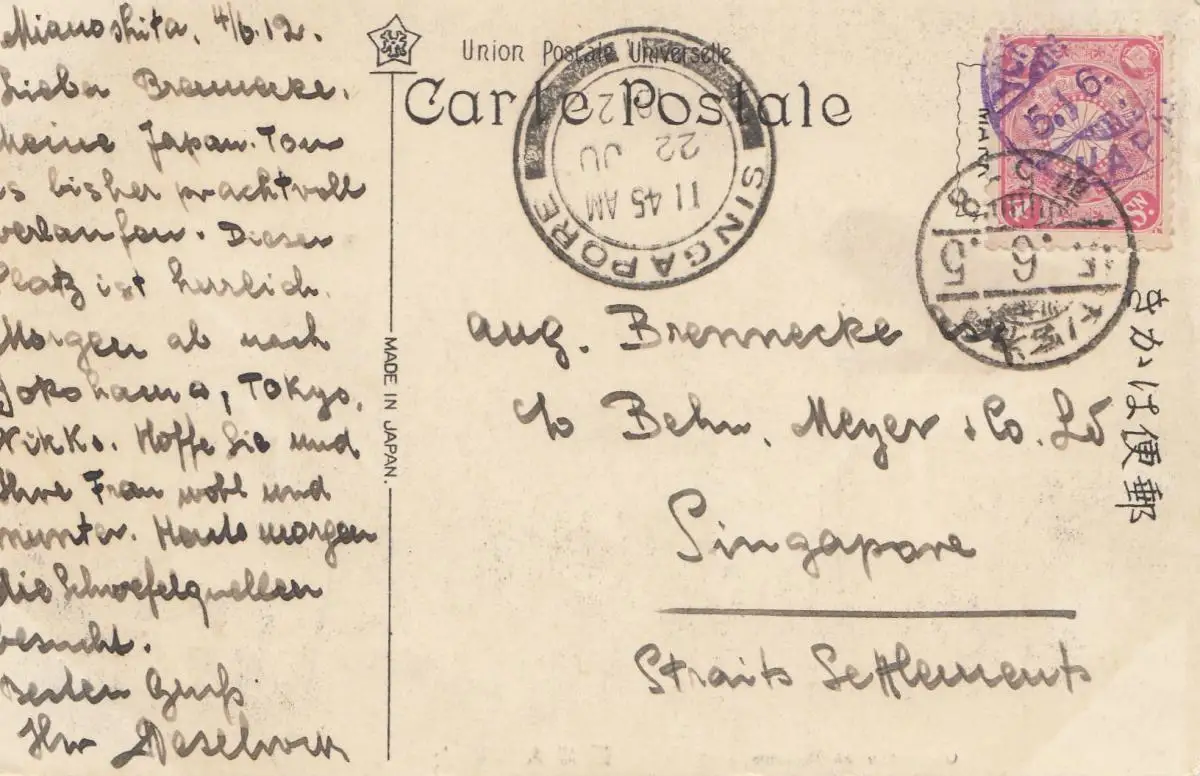 Mianoshita, 4/6.12.
Lieber Brennecke.
Meine Japan-Tour
is bisher prachtvoll
verlaufen. Dieser
Platz ist herlich.
Morgen ab nach
Yokohama, Tokyo,
Nikko. Hoffe Sie und
Ihre Frau wohl und
munter. Heute morgen
die Schwefelquellen
besucht.
Besten Gruß
Ihr
Union Postale Universelle
Carte Postale
MADE IN JAPAN.
SINGAPORE
11 45 AM
22 JU
Aug. Brennecke
c/o Behn, Meyer & Co. Ld
Singapore
Straits Settlements
5.6.
SN.
郵便はかき